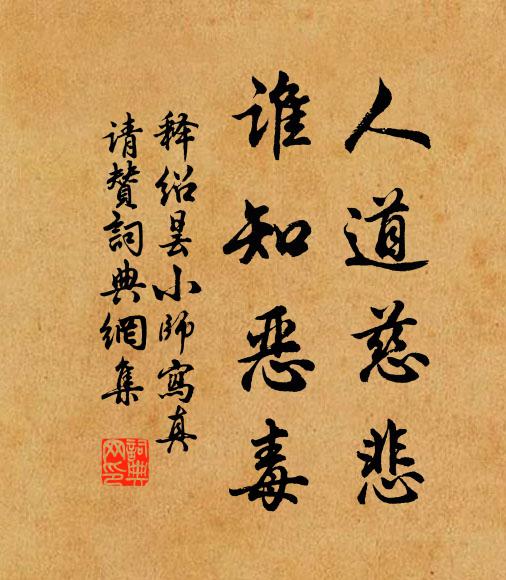 人道慈悲
谁知恶毒
释绍昙小師寫真
请贊詞典網集
詞典网印